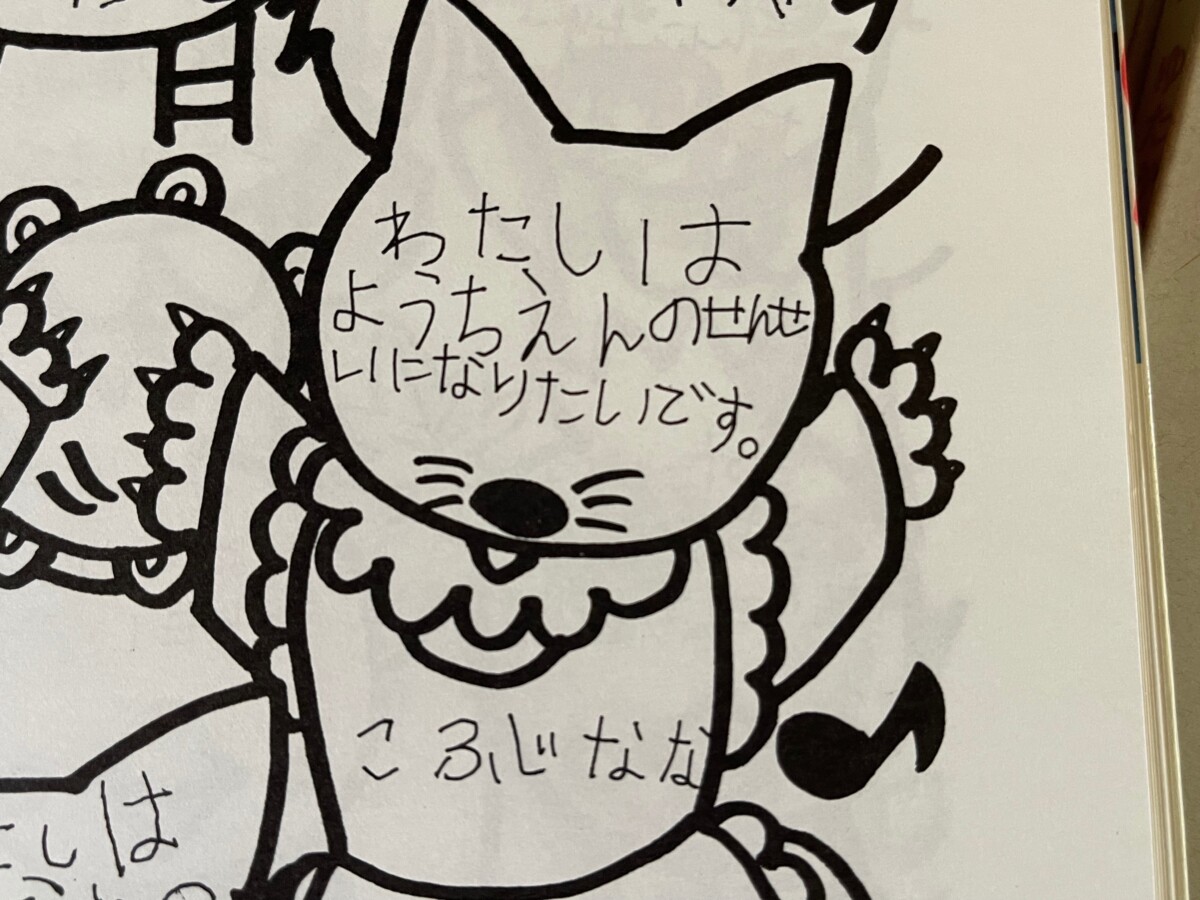 わたしは
ようちえんのせんせ
いになりたいです。
こふじなな
たしは